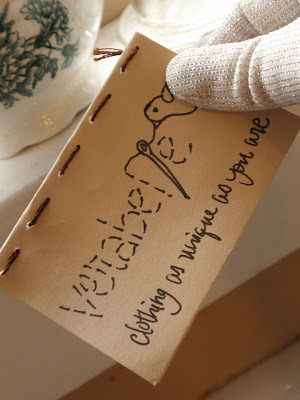 clothing as unique as you are